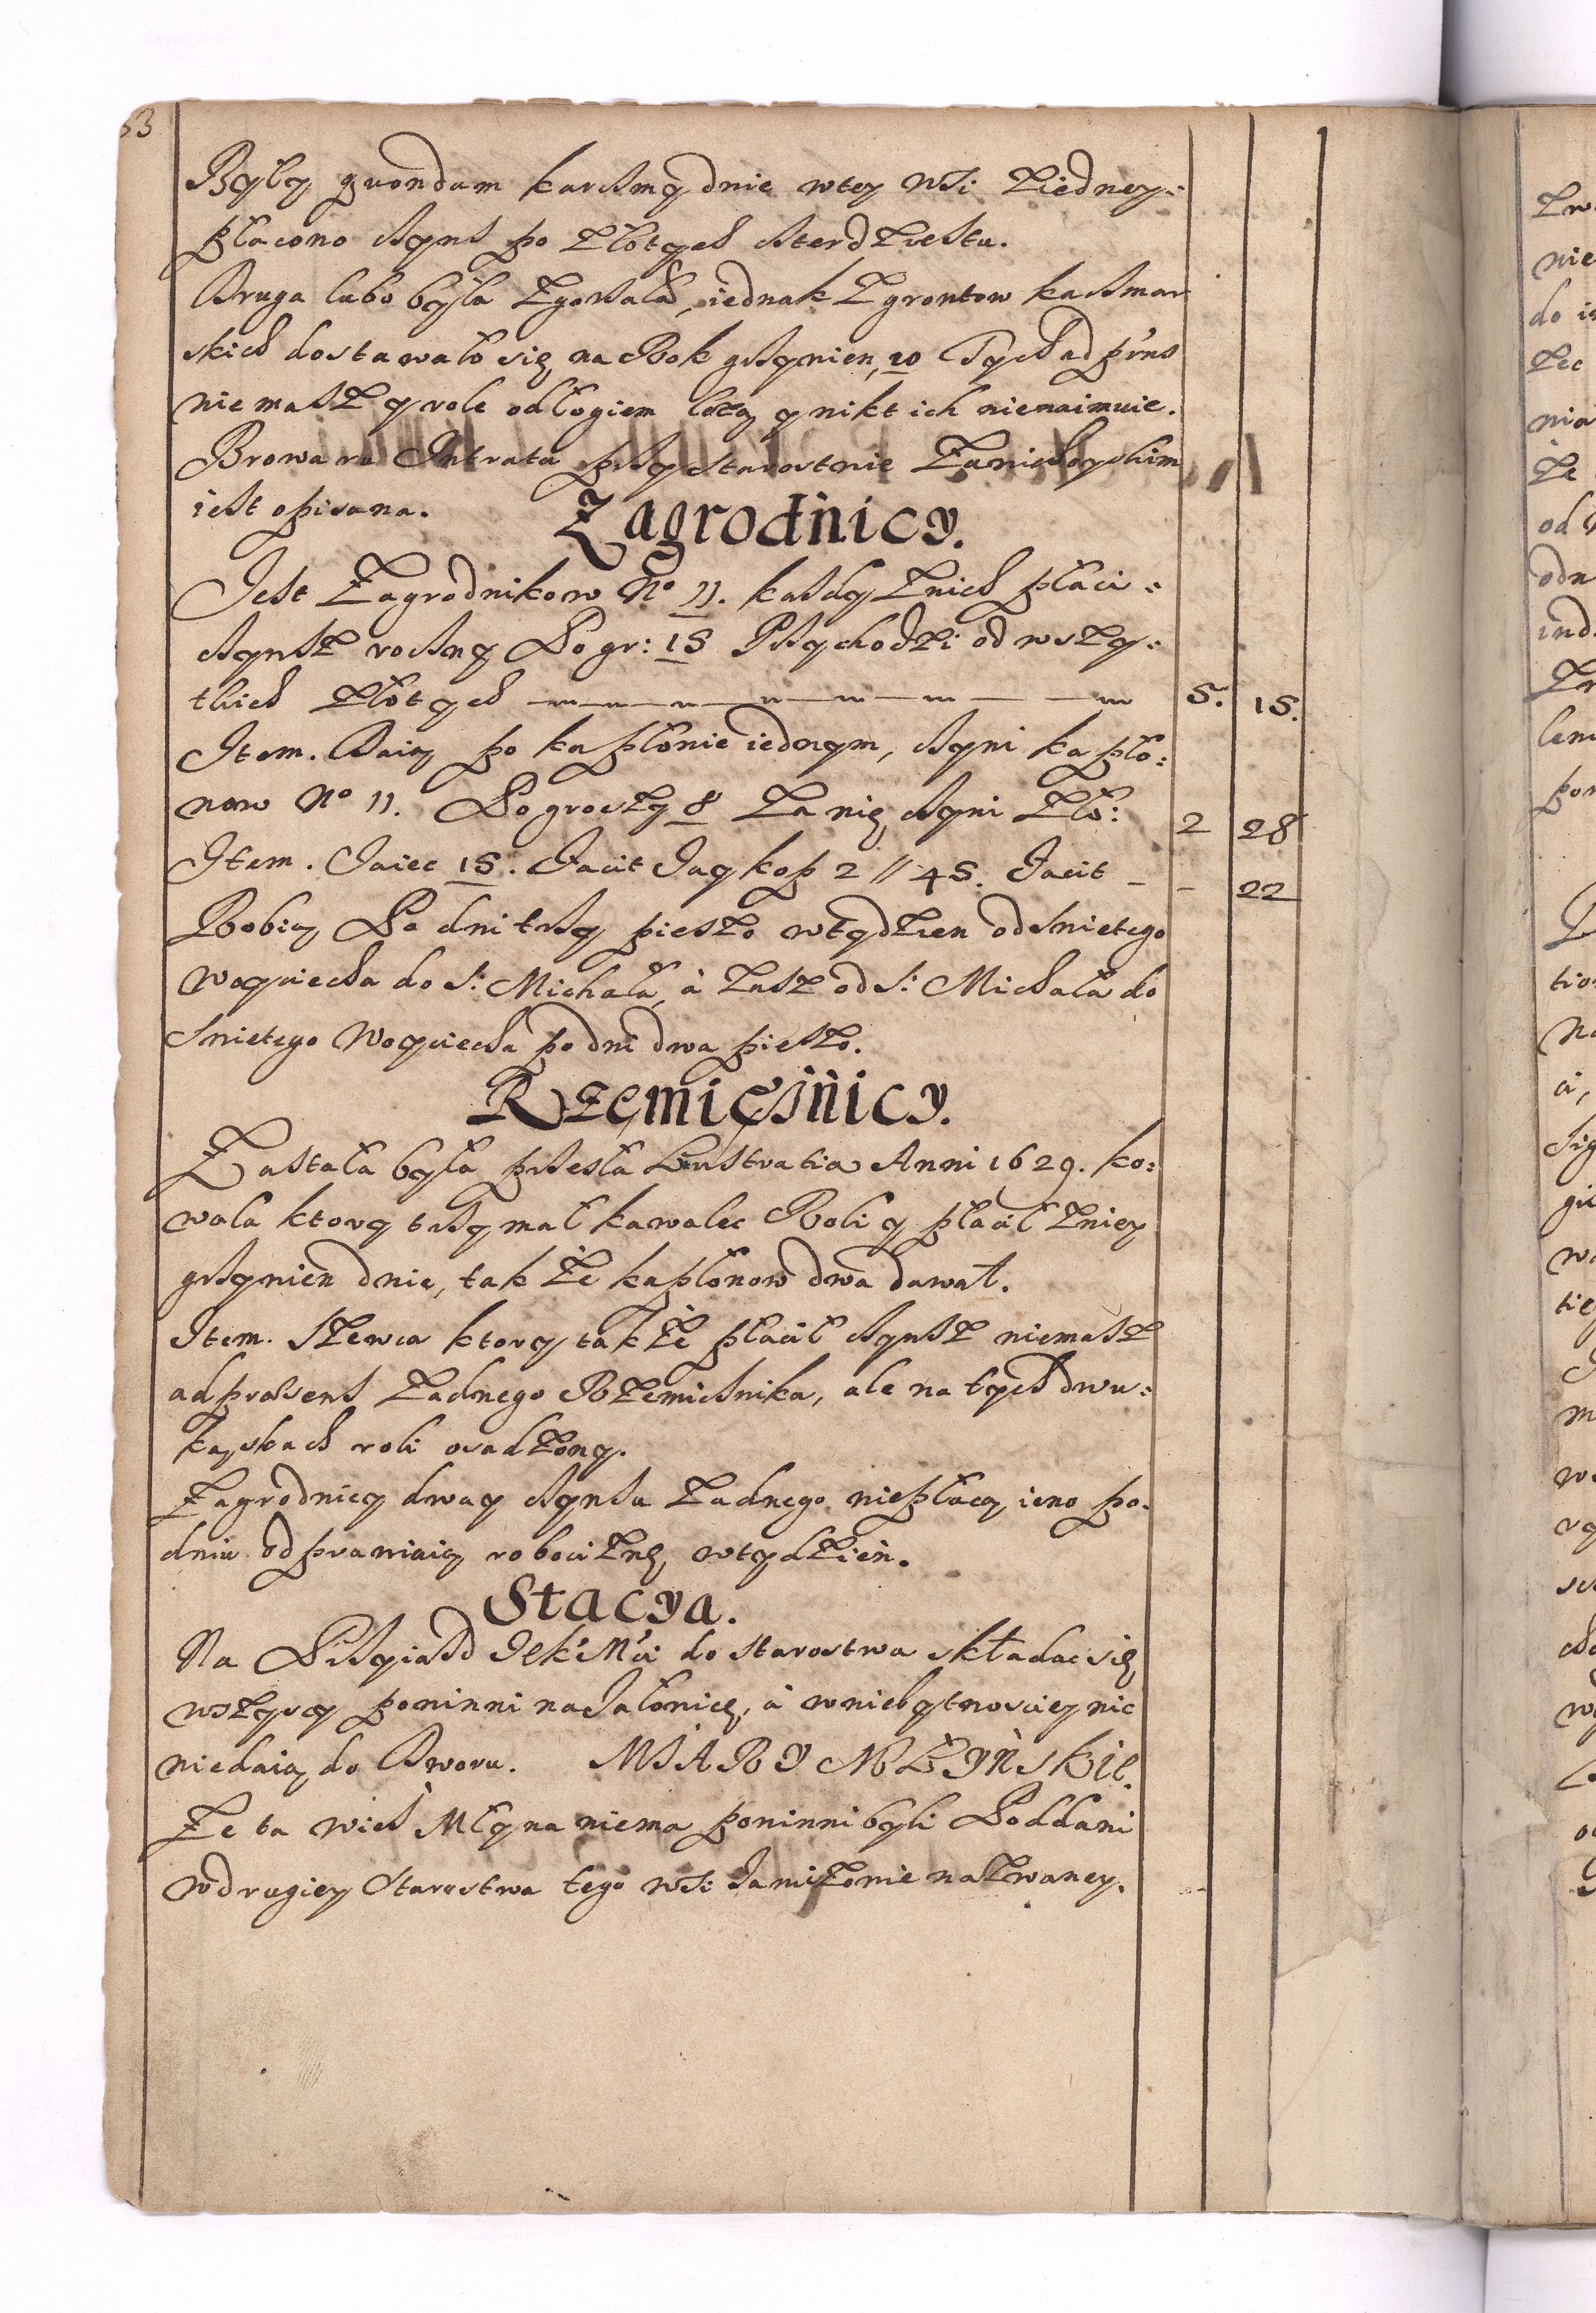 53
Były quondam karczmy dwie wtey wsi ziedney:
płacono czyns po złotych czterdziestu.
Druga lubo była zgorzała, iednak zgrontow karczmar
skich dostawało się na Rok grzywien, 10 Tych ad prns
niemasz y role odłogiem leżą y nikt ich nienaimuie.
Browaru Intrata przy starostwie
iest opisana.
Zagrodnicy.
Jest Zagrodnikow No 11. kaszdy znich płaci:
czynsz roczny Po gr: 15 Przychodzi od wszy:
tkich złotych 5. 15.
Item. Daią po kapłonie iednym, czyni kapło:
now No 11. Po groszy 8 za nie, czyni zło: 2 28
Item. Jaiec 15. Facit Jay kop 2 // 45. Facit - - 22
Robią Po dni trzy pieszo wtydzien odswietego
woyciecha do S: Michała, à zasz od S: Michała do
swietego Woyciecha po dni dwa pieszo.
Rzemięsnicy.
Zastała była przeszła Lustratia Anni 1629. ko:
wala ktory trzymał kawalec Roli y płacił zniey
grzywien dwie, także kapłonow dwa dawał.
Item. Szewca ktory także płacił czynsz niemasz
adpræsens żadnego Rzemieslnika, ale na tych dwu:
kąskach roli osadzony.
Zagrodnicy dway czynszu żadnego niepłacą, ieno po
dniu odprawiaią roboćiznę, wtydzień.
Stacya.
Na Przyiazd JekMci do starostwa składac się,
wszyscy powinni naJałowicę, à wniebytnosciey nic
niedaią do Dworu. MIARY MŁYŃSKIE.
Że ta wies Młyna niema powinni byli Poddani
wdrugiey Starostwa tego wsi nazwaney.